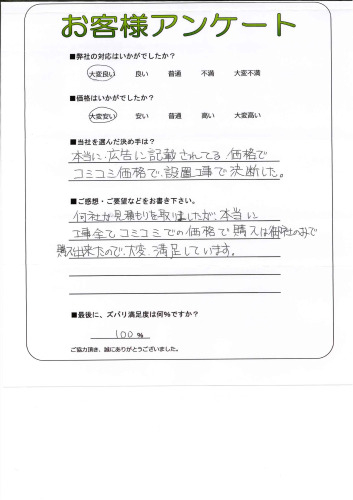 お客様アンケート
■弊社の対応はいかがでしたか？
大変良い 良い 普通 不満 大変不満
■価格はいかがでしたか？
大変安い 安い 普通 高い 大変高い
■当社を選んだ決め手は？
本当に、広告に記載されてる、価格で
コミコミ価格で、設置工事で決断した。
■ご感想・ご要望などをお書き下さい。
何社か見積もりを取りましたが、本当に
工事全てコミコミでの価格で購入は御社のみで
購入出来たので、大変、満足しています。
■最後に、ズバリ満足度は何％ですか？
100 ％
ご協力頂き、誠にありがとうございました。